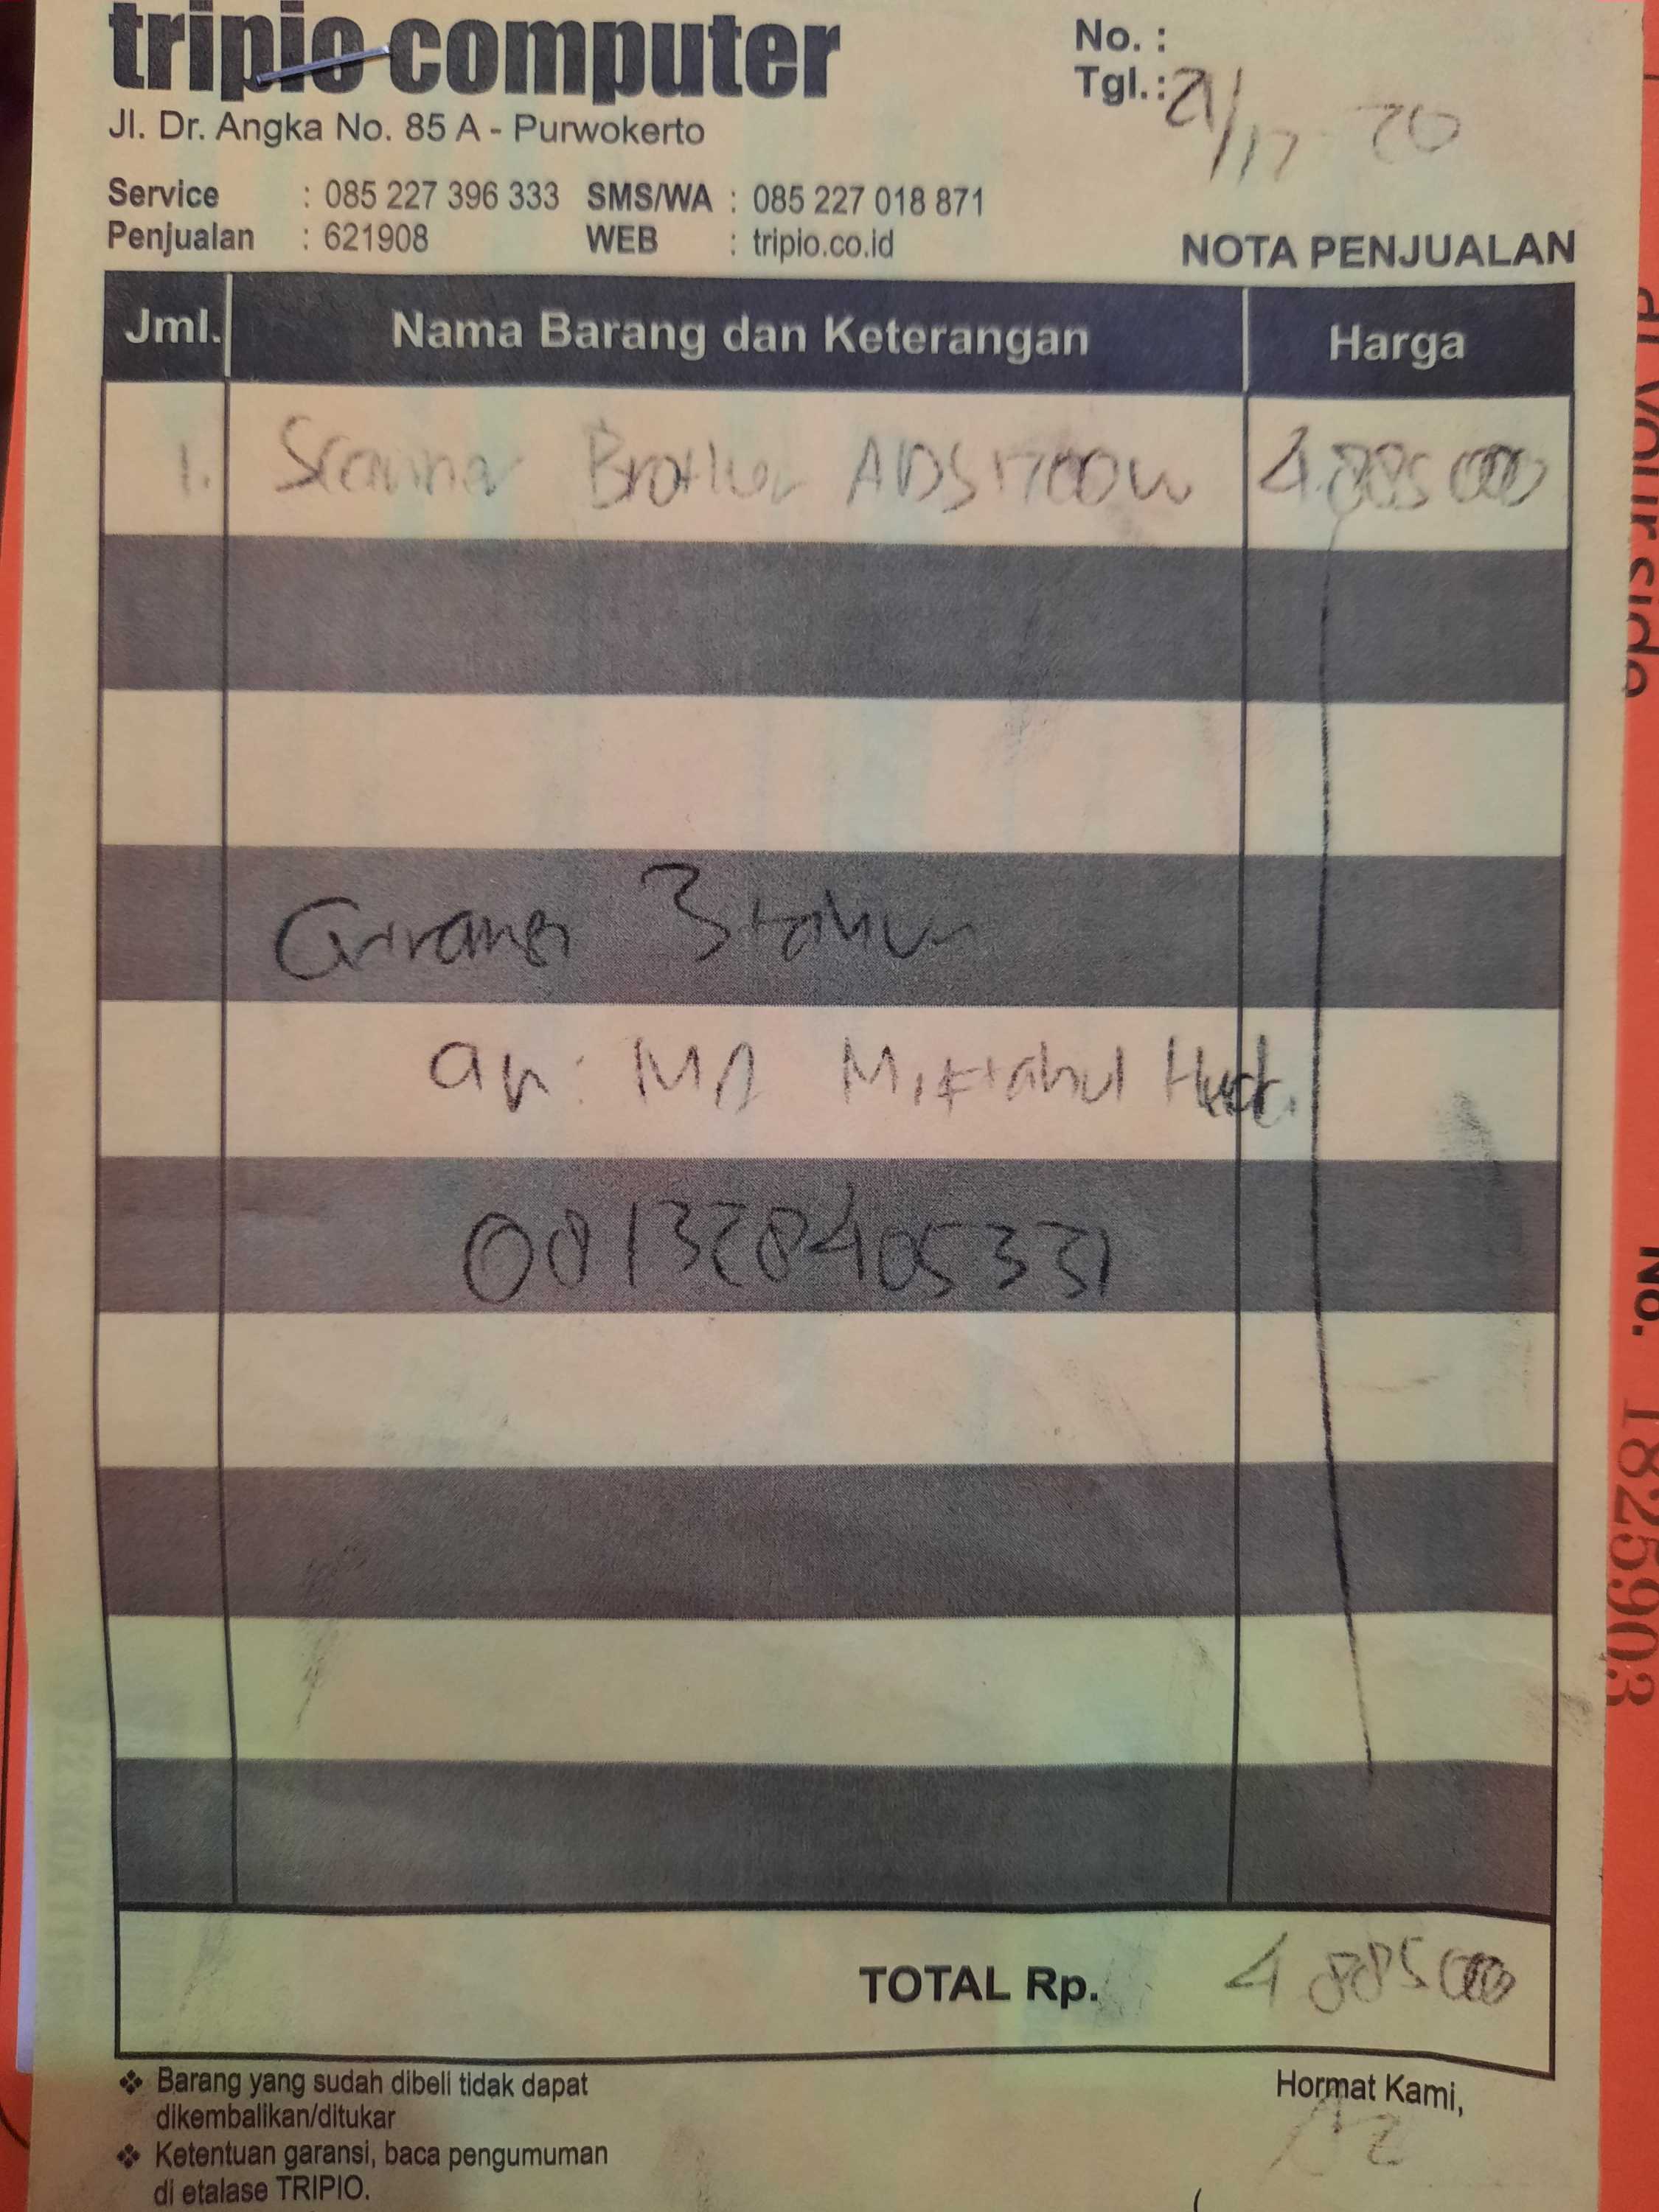 tripio computer
No. :
Tgl. : 21/12 20
Jl. Dr. Angka No. 85 A - Purwokerto
Service : 085 227 396 333 SMS/WA : 085 227 018 871
Penjualan : 621908 WEB : tripio.co.id
NOTA PENJUALAN
Jml. Nama Barang dan Keterangan Harga
1. Scanner Brother ADS 1700W 4.885000
Garansi 3 tahun
an: MA Miftahul Huda
081328405331
TOTAL Rp. 4885000
❖ Barang yang sudah dibeli tidak dapat
dikembalikan/ditukar
❖ Ketentuan garansi, baca pengumuman
di etalase TRIPIO.
Hormat Kami,
at your side
No. 1825903